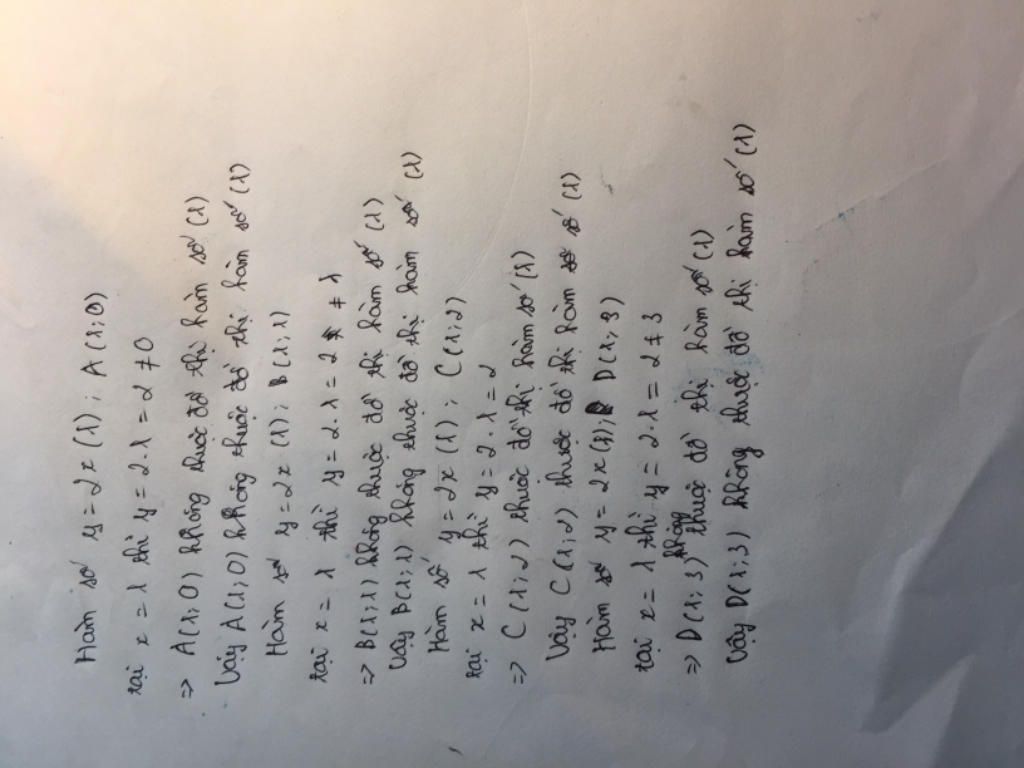 Hàm số y = 2x (1) ; A(1;0)
tại x = 1 thì y = 2.1 = 2 ≠ 0
=> A(1;0) không thuộc đồ thị hàm số (1)
Vậy A(1;0) không thuộc đồ thị hàm số (1)
Hàm số y = 2x (1) ; B(1;1)
tại x = 1 thì y = 2.1 = 2 ≠ 1
=> B(1;1) không thuộc đồ thị hàm số (1)
Vậy B(1;1) không thuộc đồ thị hàm số (1)
Hàm số y = 2x (1) ; C(1;2)
tại x = 1 thì y = 2.1 = 2
=> C(1;2) thuộc đồ thị hàm số (1)
Vậy C(1;2) thuộc đồ thị hàm số (1)
Hàm số y = 2x (1); D(1;3)
tại x = 1 thì y = 2.1 = 2 ≠ 3
=> D(1;3) không thuộc đồ thị hàm số (1)
Vậy D(1;3) không thuộc đồ thị hàm số (1)